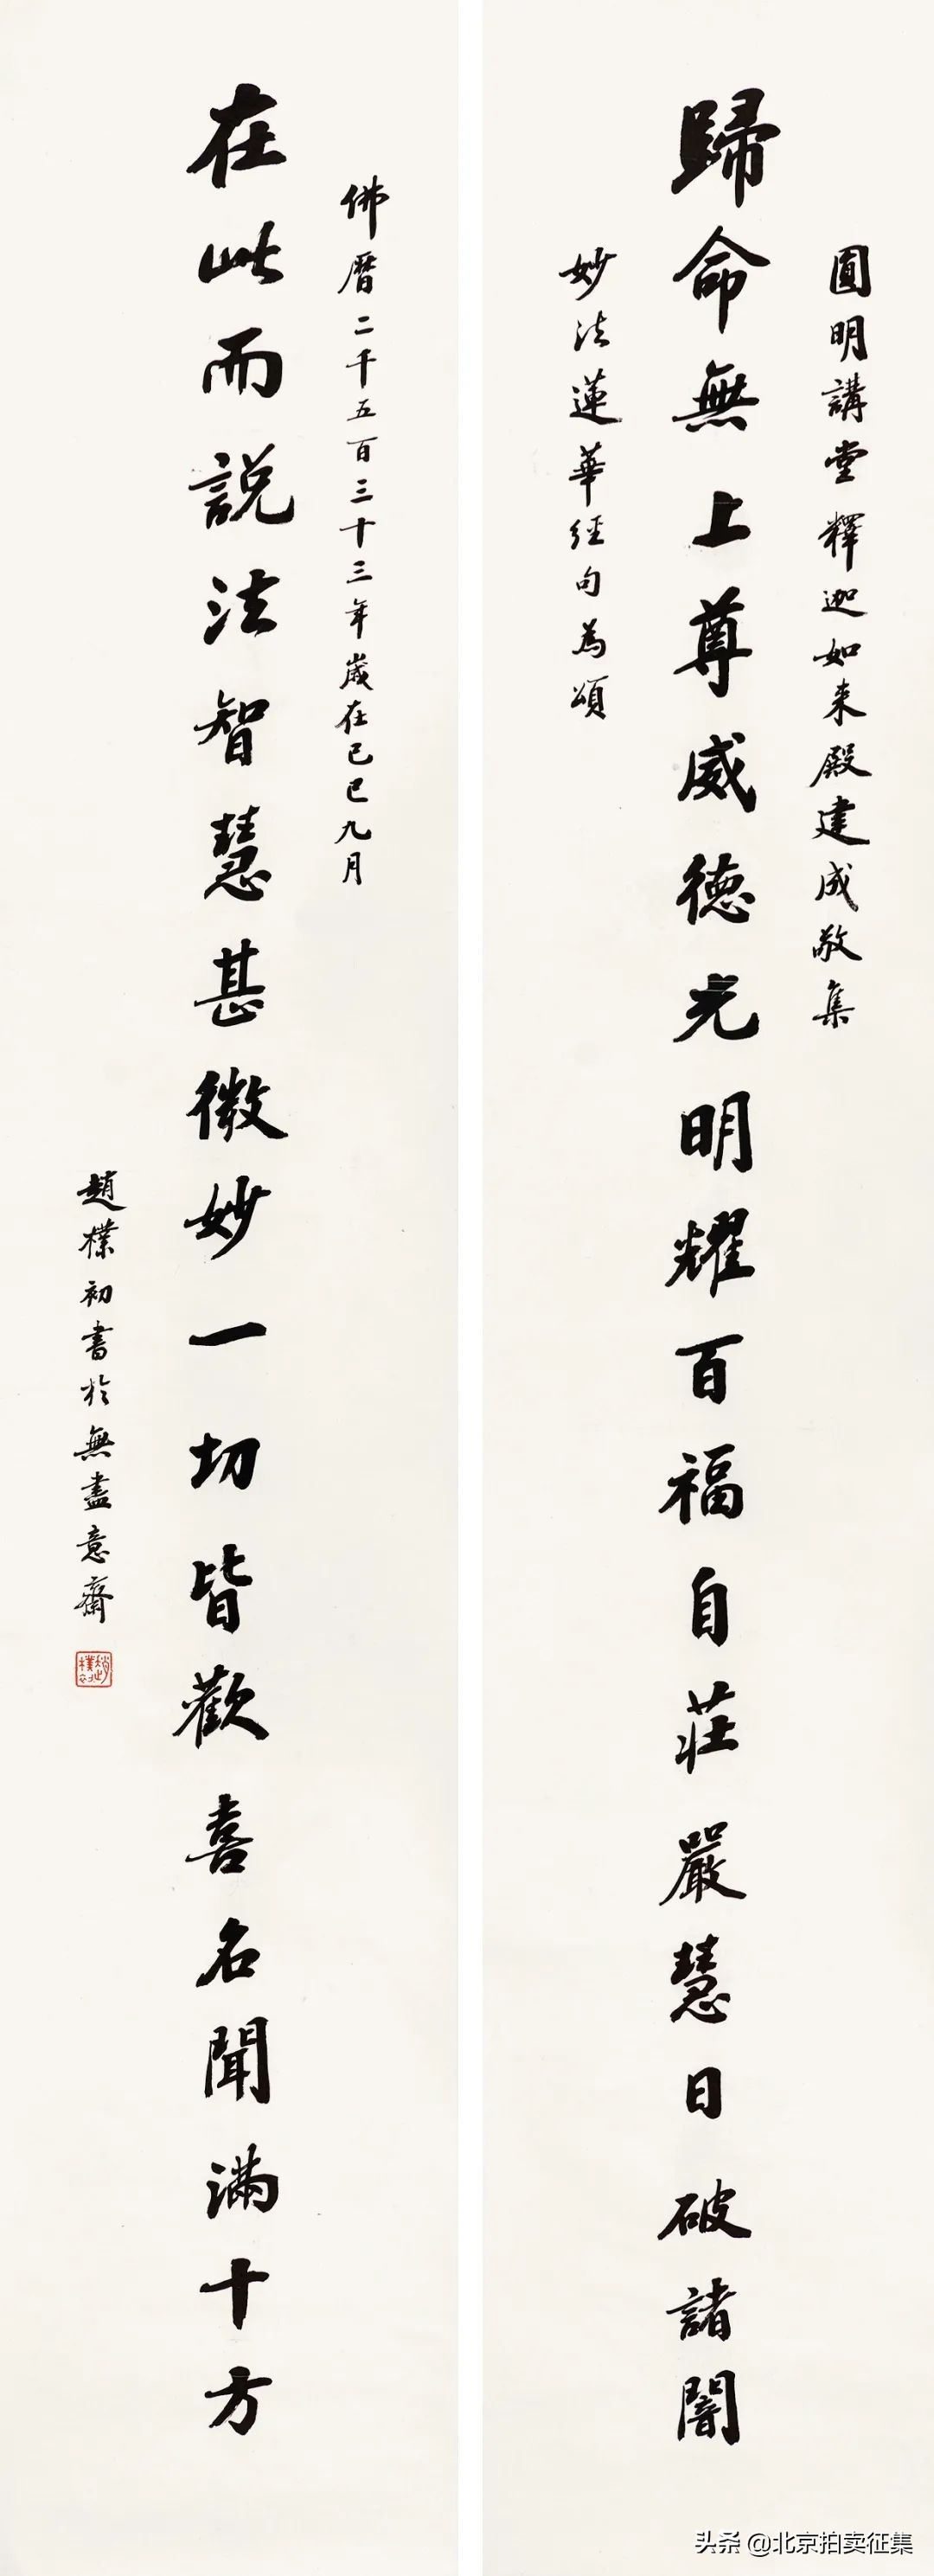 圓明講堂釋迦如来殿建成敬集
歸命無上尊威德光明耀百福自莊嚴慧日破諸闇
妙法蓮華經句為頌
佛曆二千五百三十三年歲在己巳九月
在此而說法智慧甚微妙一切皆歡喜名聞滿十方
趙樸初書於無盡意齋
趙樸初
头条 @北京拍卖征集